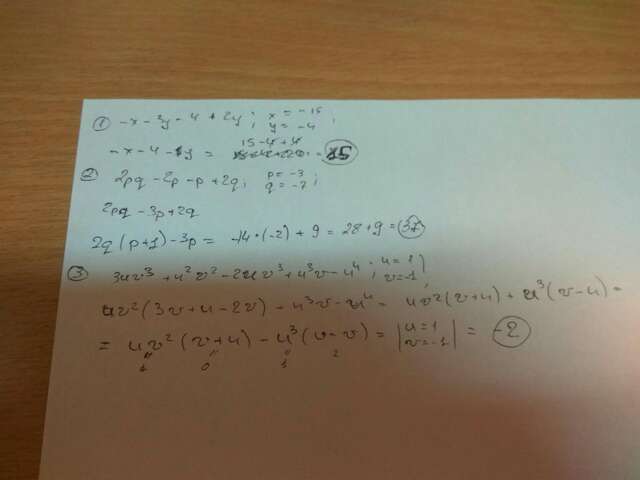 ① -x - 3y - 4 + 2y ; x = -15 ; y = -4 ;
-x - 4 - y = 15 - 4 + 4 = 15
② 2pq - 2p - p + 2q ; p = -3 ; q = -7 ;
2pq - 3p + 2q
2q (p+1) - 3p = -14 * (-2) + 9 = 28 + 9 = 37
③ 3uv³ + u²v² - 2uv³ + u³v - u⁴ ; u = 1 ; v = -1 ;
uv² (3v + u - 2v) - u³v - u⁴ = uv² (v+u) + u³ (v-u) =
= uv² (v+u) - u³ (u-v) = | u = 1 v = -1 | = -2
1 0 1 2